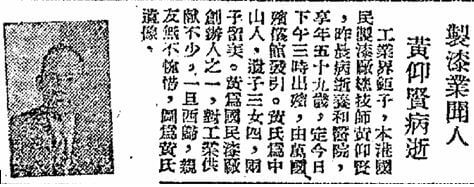 製漆業聞人
黃仰賢病逝
工業界鉅子，本港國
民製漆廠總技師黃仰賢
，昨晨病逝養和醫院，
享年五十九歲，定今日
下午三時出殯，由萬國
殯儀館發引。黃氏爲中
山人，遺子三女四，兩
子留美。黃爲國民漆廠
創辦人之一，對工業供
獻不少，一旦西歸，親
友無不惋惜，圖爲黃氏
遺像。